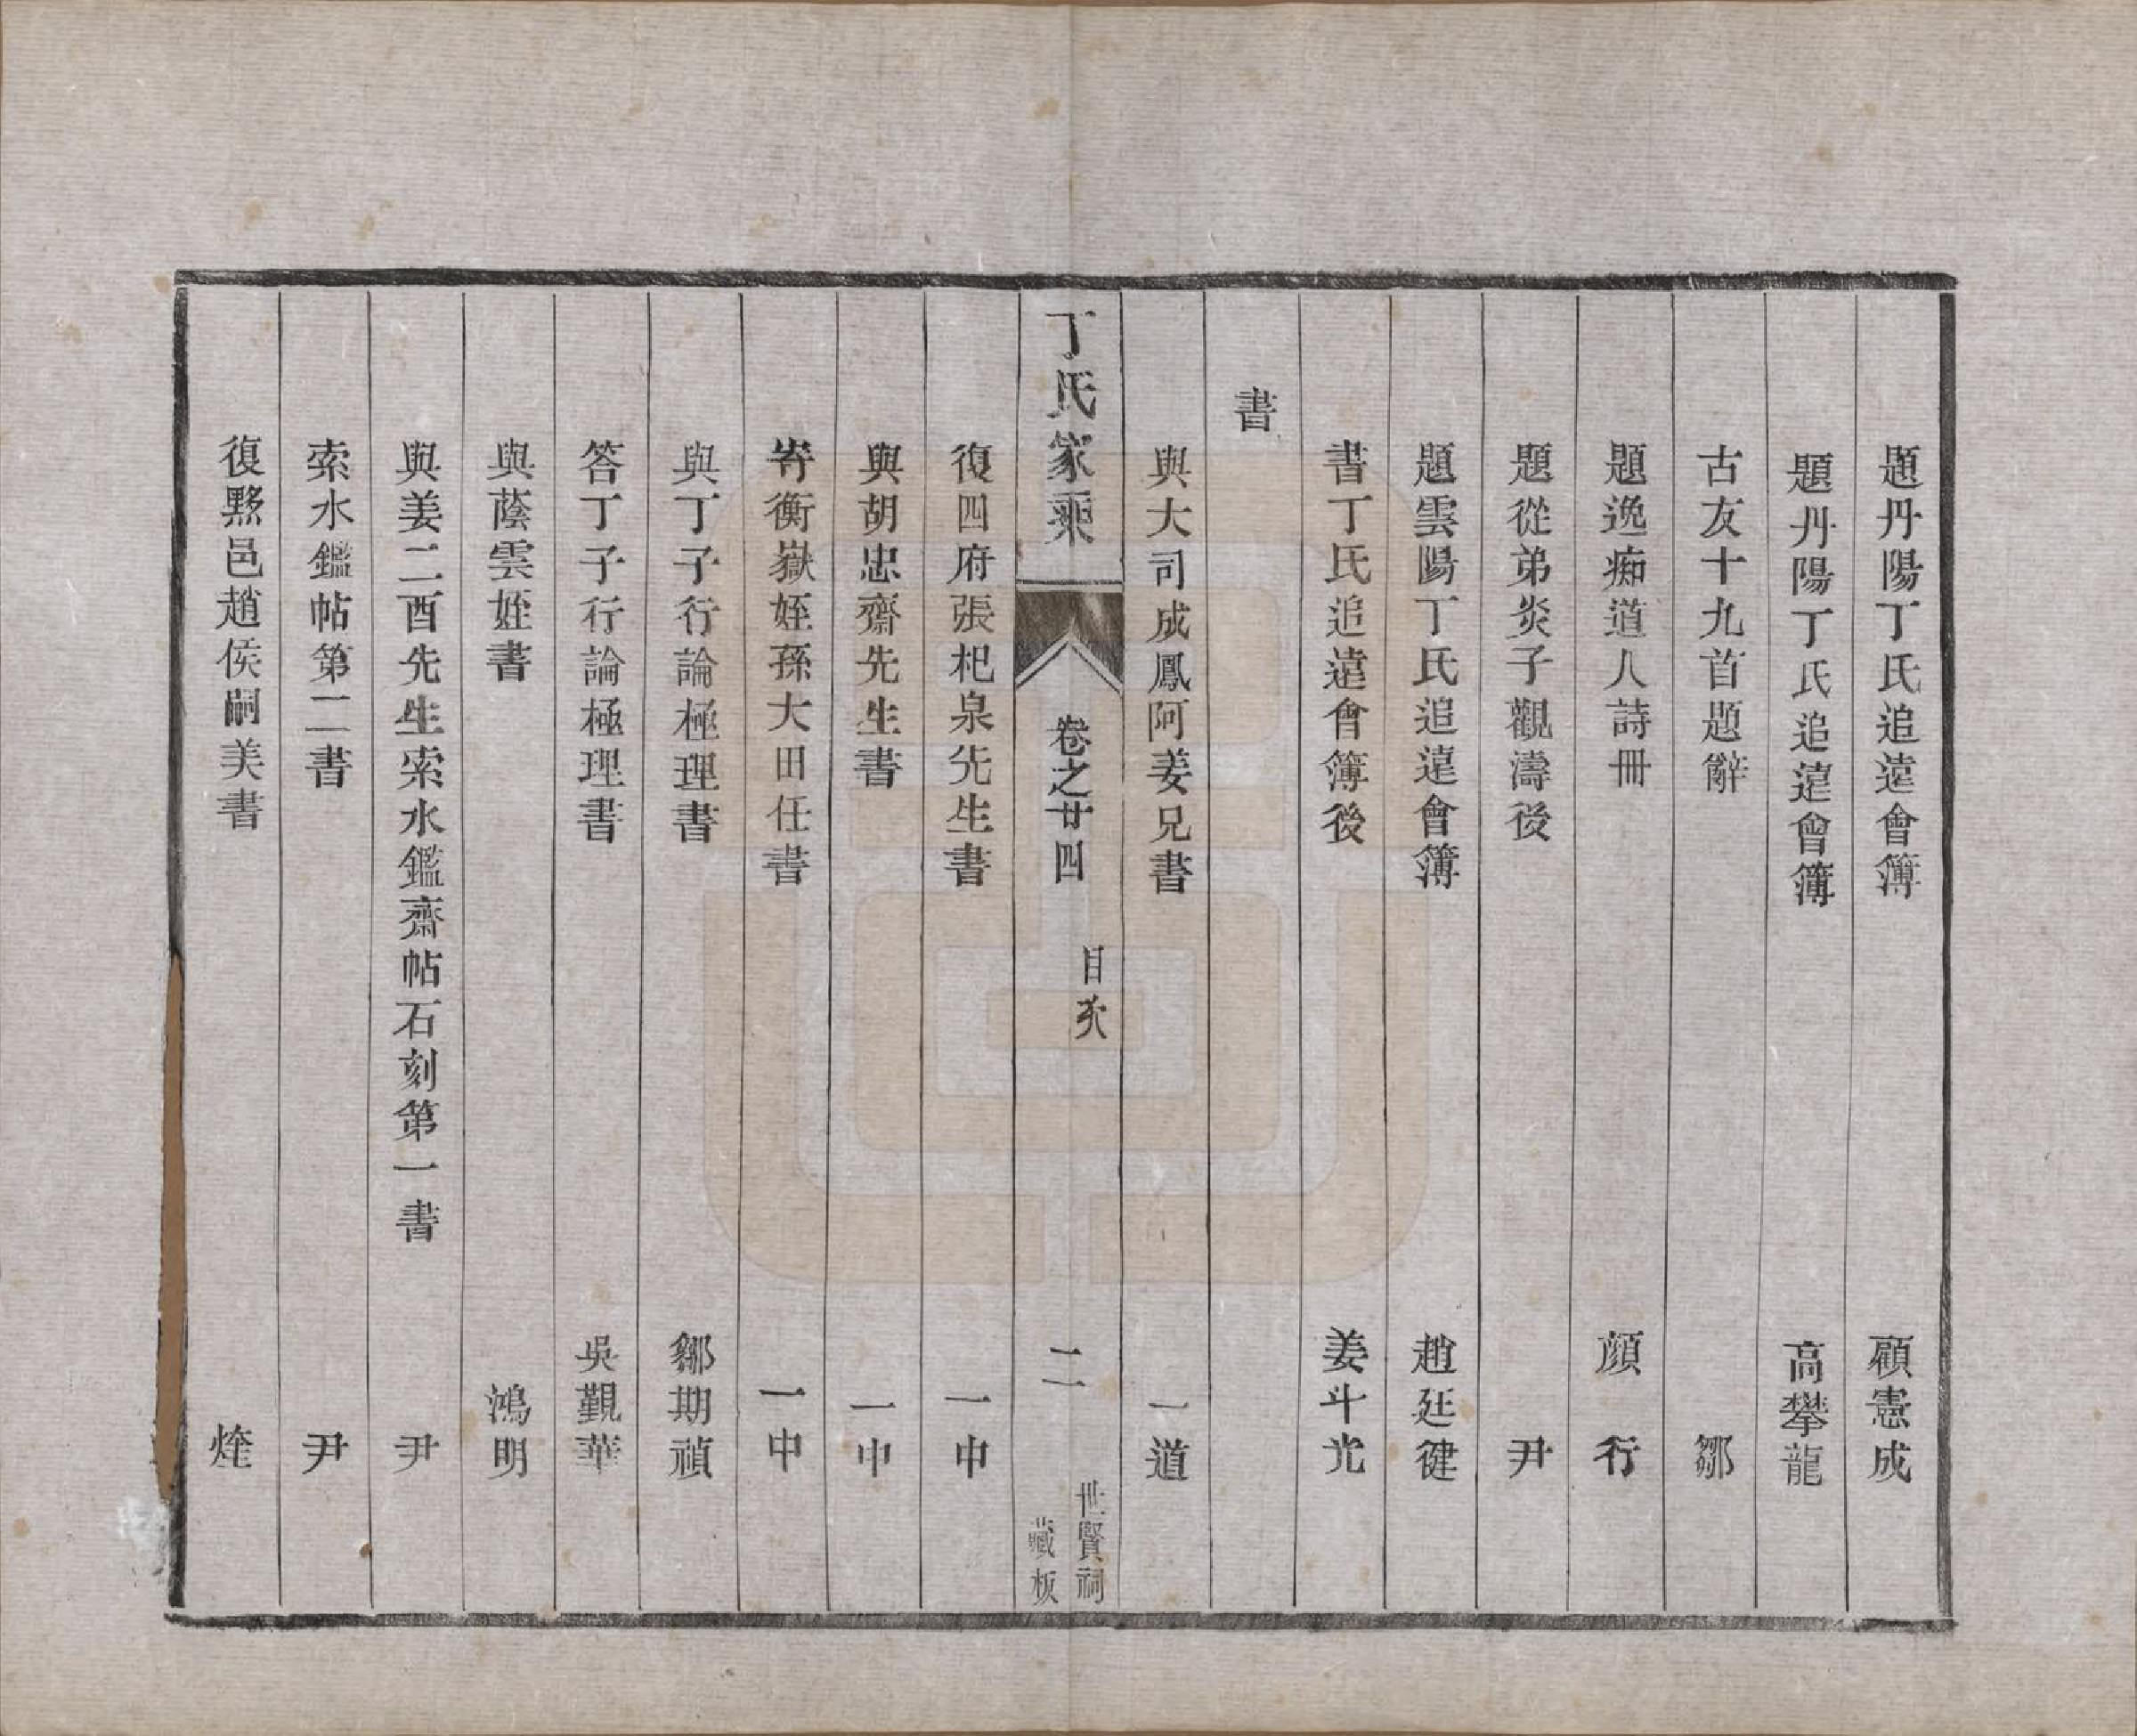 題丹陽丁氏追遠會簿　顧憲成
題丹陽丁氏追遠會簿　高攀龍
古友十九首題辭　鄒
題逸痴道人詩冊　顔行
題從弟炎子觀濤後　尹
題雲陽丁氏追遠會簿　趙廷健
書丁氏追遠會簿後　姜斗光
書
與大司成鳳阿姜兄書　一道
丁氏家乘　卷之廿四　目次　二　世賢祠藏板
復四府張杞泉先生書　一中
與胡忠齋先生書　一中
寄衡嶽姪孫大田任書　一中
與丁子行論極理書　鄒期禎
答丁子行論極理書　吳覲華
與蔭雲姪書　鴻明
與姜二酉先生索水鑑齋帖石刻第一書　尹
索水鑑帖第二書　尹
復黟邑趙侯嗣美書　煃